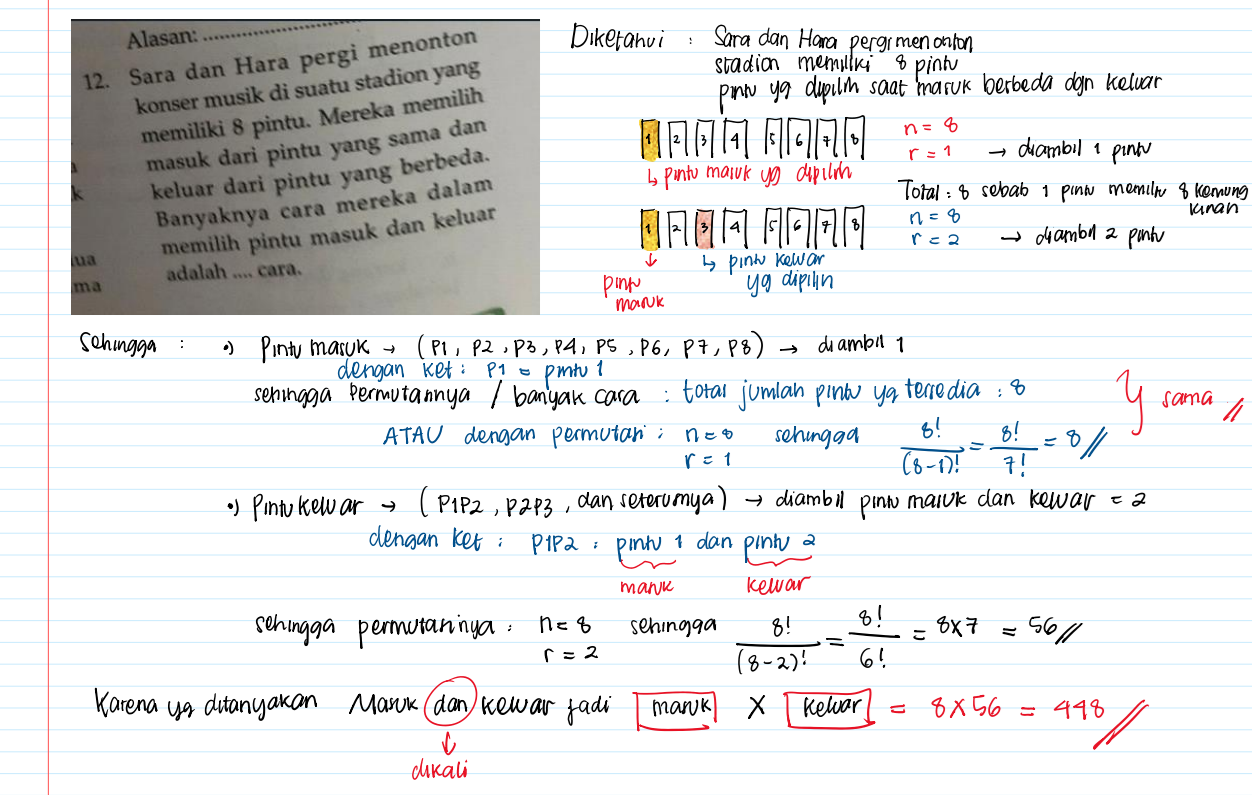 Alasan: ..............................
12. Sara dan Hara pergi menonton
konser musik di suatu stadion yang
memiliki 8 pintu. Mereka memilih
masuk dari pintu yang sama dan
keluar dari pintu yang berbeda.
Banyaknya cara mereka dalam
memilih pintu masuk dan keluar
adalah .... cara.
k
ua
ma
Diketahui : Sara dan Hara pergi menonton
stadion memiliki 8 pintu
pintu yg dipilih saat masuk berbeda dgn keluar
1 2 3 4 5 6 7 8
n = 8
r = 1 → diambil 1 pintu
↳ pintu masuk yg dipilih
Total : 8 sebab 1 pintu memiliki 8 kemung
kinan
1 2 3 4 5 6 7 8
n = 8
r = 2 → diambil 2 pintu
↓ pintu masuk
↳ pintu keluar
yg dipilih
Sehingga : •) Pintu masuk → (P1, P2, P3, P4, P5, P6, P7, P8) → diambil 1
dengan ket : P1 = pintu 1
sehingga Permutasinya / banyak cara : total jumlah pintu yg tersedia : 8
ATAU dengan permutasi : n = 8 sehingga 8!/(8-1)! = 8!/7! = 8 //
r = 1
} sama //
•) Pintu keluar → (P1P2, P2P3, dan seterusnya) → diambil pintu masuk dan keluar = 2
dengan ket : P1P2 : pintu 1 dan pintu 2
masuk keluar
sehingga permutasinya : n = 8 sehingga 8!/(8-2)! = 8!/6! = 8x7 = 56 //
r = 2
Karena yg ditanyakan Masuk dan keluar jadi masuk X keluar = 8 X 56 = 448 //
↓
dikali